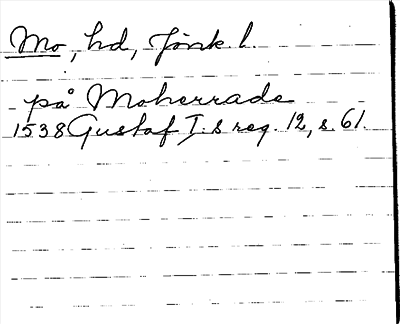 Mo, hd, Jönk. l.
på Moherrade
1538 Gustaf I. s reg. 12, s. 61.